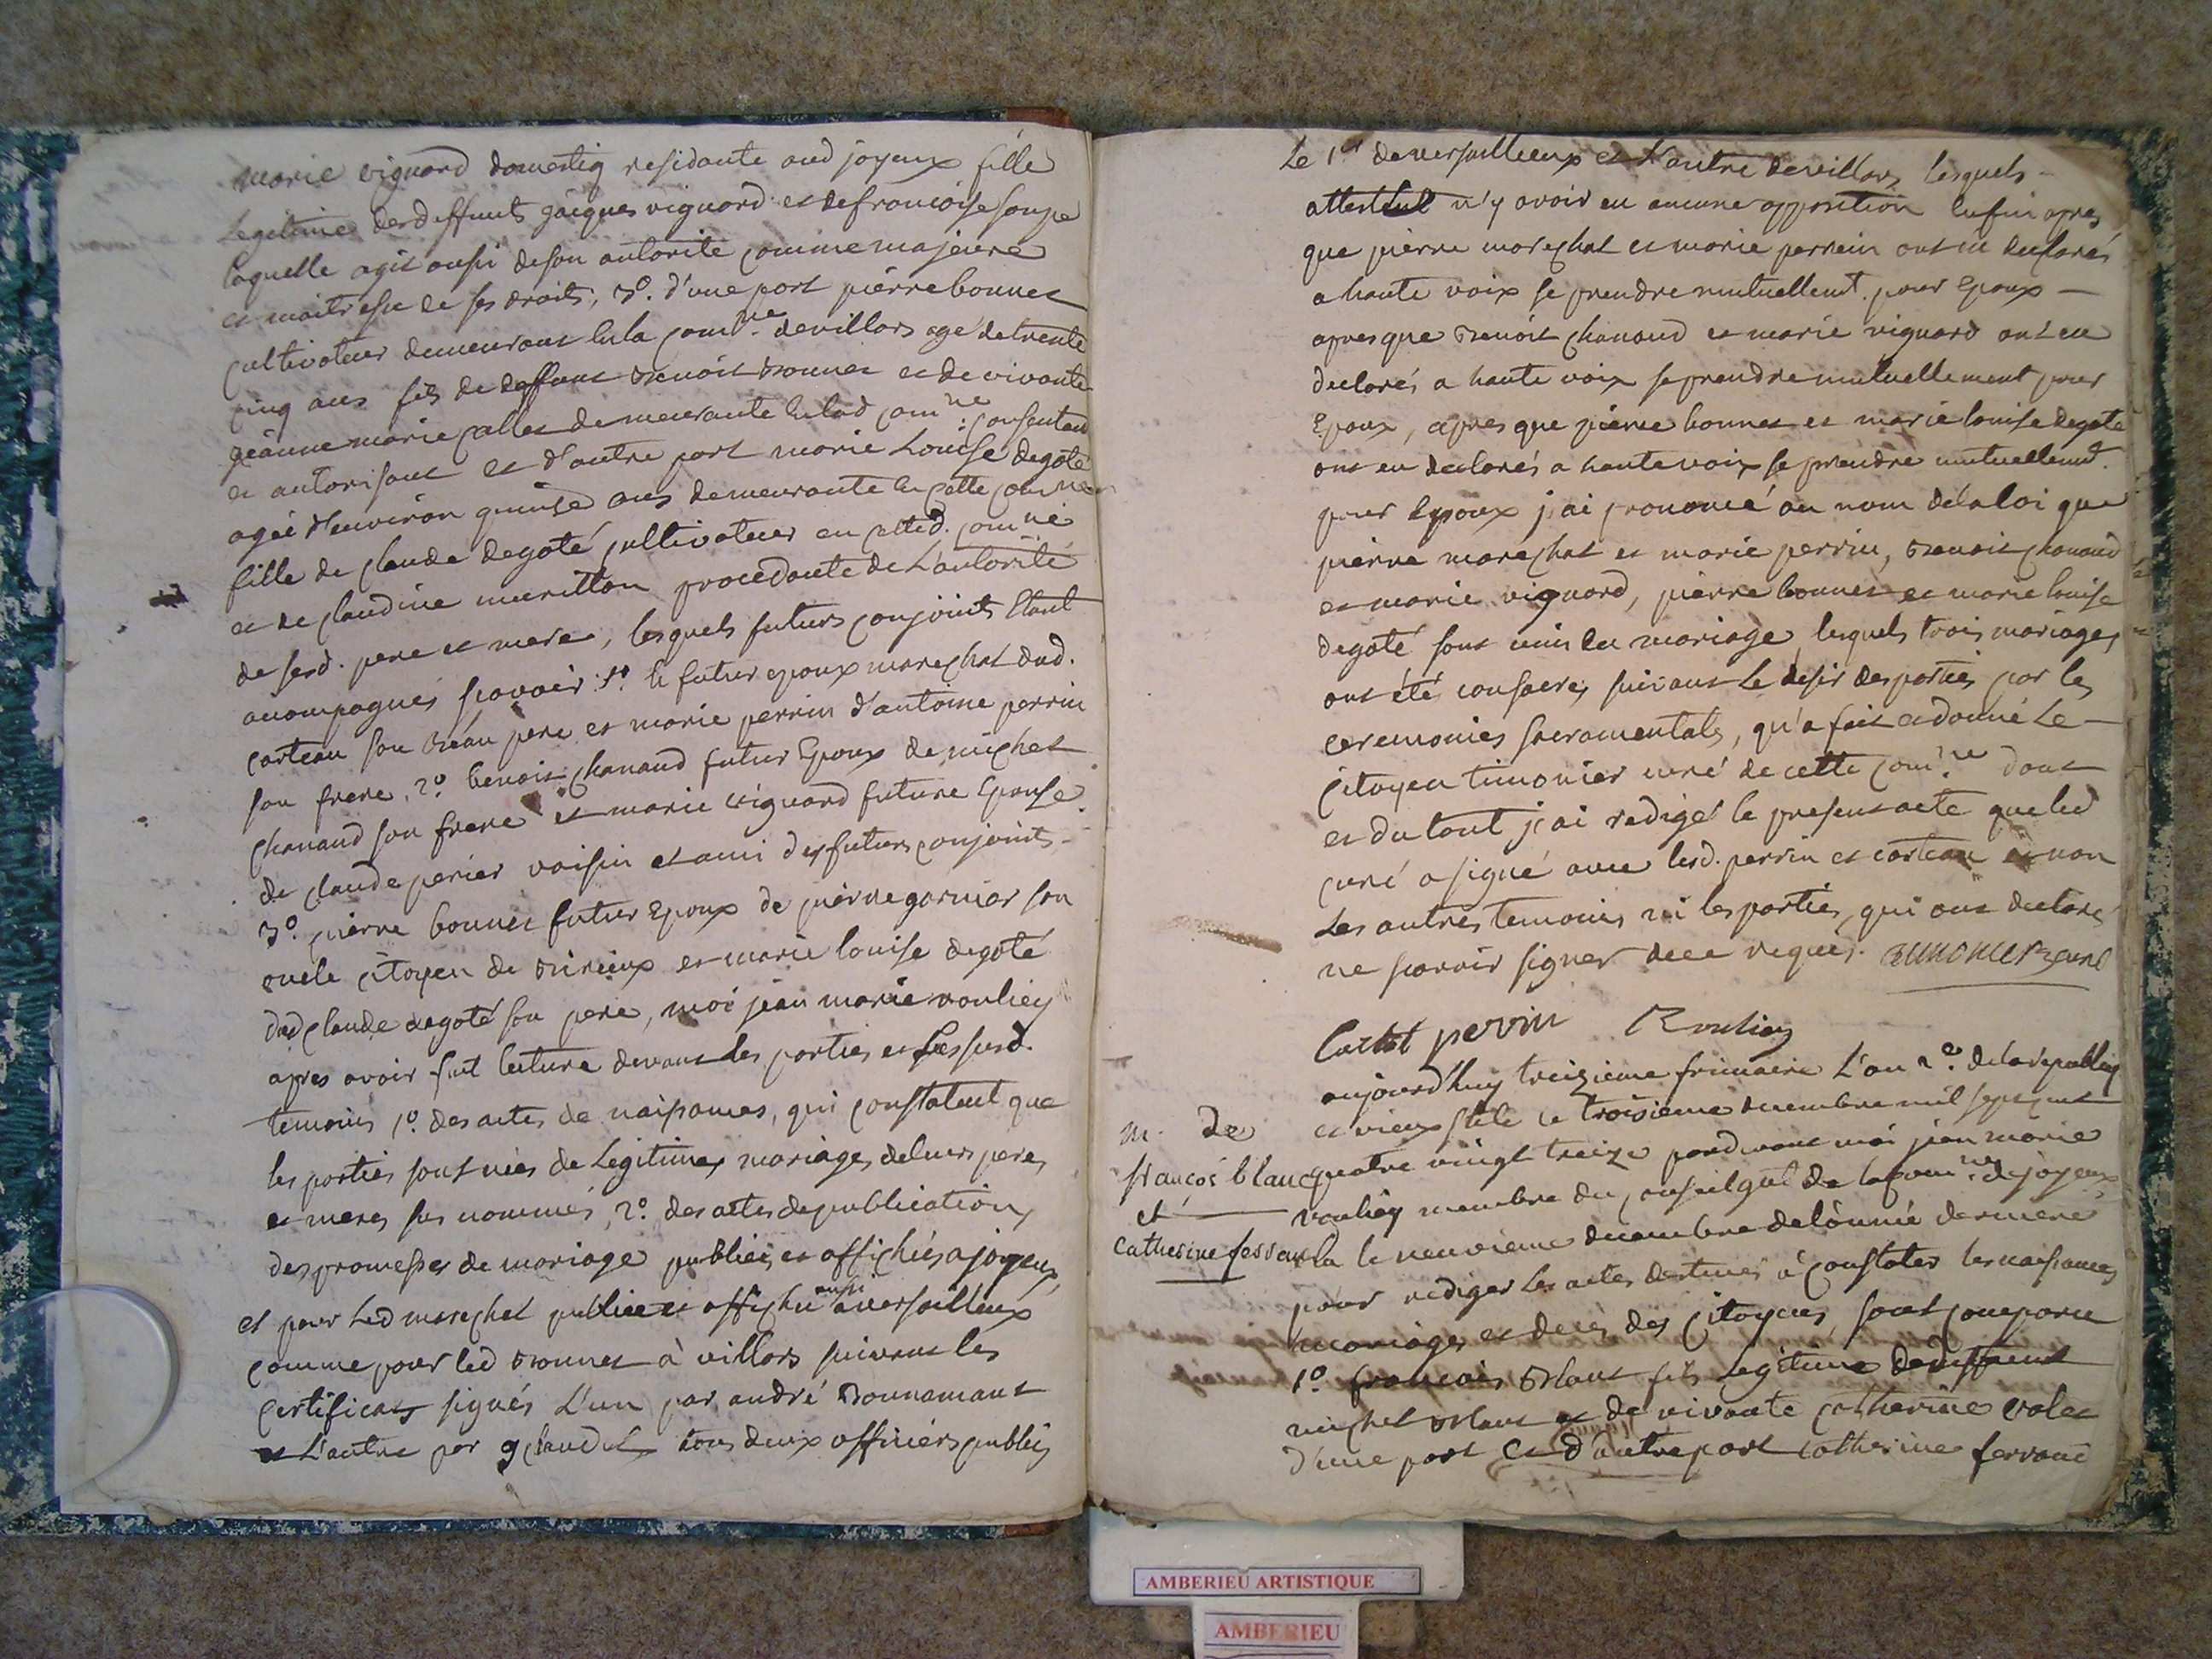 marie viguard domestiq residante aud joyeux fille
Legitime des deffunts jacques viguard et de francoise soupe
laquelle agit aussi de son autorité comme majeure
et maitresse de ses droits, 3o. d'une part pierre bonnet
cultivateur demeurant en la comne. de villars agé de trente
cinq ans fils de deffunt Benoit Bonnet et de vivante
jeanne marie demeurante en lad comne: consentant
et autorisant et d'autre part marie Louise degoté
agée d'environ quinse ans demeurante en cette comne
fille de claude degoté cultivateur en cetted. comne
et de claudine muritton procedante de L'autorité
de sesd. pere et mere, lesquels futurs conjoints Etant
acompagnés sçavoir: 1o. le futur epoux marechat dud.
carteau son Beau pere et marie perrin d'antoine perrin
son frere, 2o. benoit chanaud futur Epoux de michel
chanaud son frere et marie viguard future Epouse
de claude perier voisin et ami des futurs conjoints -
3o. pierre bonnet futur Epoux de pierre garnier son
oncle citoyen de Birieux et marie louise degoté
dud claude degoté son pere, moi jean marie rouliey
apres avoir fait lecture devant les parties et les susd.
temoins 1o. des actes de naissances, qui constatent que
les parties sont nées de Legitimes mariages de leurs peres
et meres sus nommés, 2o. des actes de publications
des promesses de mariage publiées et affichées a joyeux,
et pour Led marechat publiée et affichée aussi a versailleux
comme pour led Bonnet à villars suivant les
certificats signés L'un par andré Bonnamant
et L'autre par tous deux officiers publics
Le 1er de versailleux et L'autre de villars, lesquels -
attestent n'y avoir eu aucune opposition Enfin apres
que pierre marechat et marie perrin ont eu declarés
a haute voix se prendre mutuellemt. pour Epoux -
apres que Benoit chanaud et marie viguard ont eu
declarés a haute voix se prendre mutuellement pour
Epoux, apres que pierre bonnet et marie louise degoté
ont eu declarés a haute voix se prendre mutuellemt.
pour Epoux j'ai prononcé au nom de la loi que
pierre marechat et marie perrin, Benoit chanaud
et marie viguard, pierre bonnet et marie louise
degoté sont unis en mariage, lesquels trois mariages
ont été consacrés suivant Le desir des parties par les
ceremonies sacramentales, qu'a fait et donné Le -
citoyen timonier curé de cette comne. dont
et du tout j'ai redigé le present acte que led
curé a signé avec lesd. perrin et carteau et non
Les autres temoins ni les parties, qui ont declaré
ne sçavoir signer de ce requis. timonier curé
perrin Rouliey
m. de
françois blanc
et
catherine
aujourd'huy treizieme frimaire L'an 2e. de la republiq
et vieux stile le troisieme decembre mil sept cent
quatre vingt treize pardevant moi jean marie
rouliey membre du conseil gnl de la comne. de joyeux
la le neuvieme decembre de l'année derniere
pour rediger les actes destinés à constater les naissances
mariages et decès des citoyens, sont comparu
1o. françois Blanc fils Legitime de deffunt
michel Blanc et de vivante catherine valet
d'une part et d'autre part catherine ferrand
AMBERIEU ARTISTIQUE
AMBERIEU